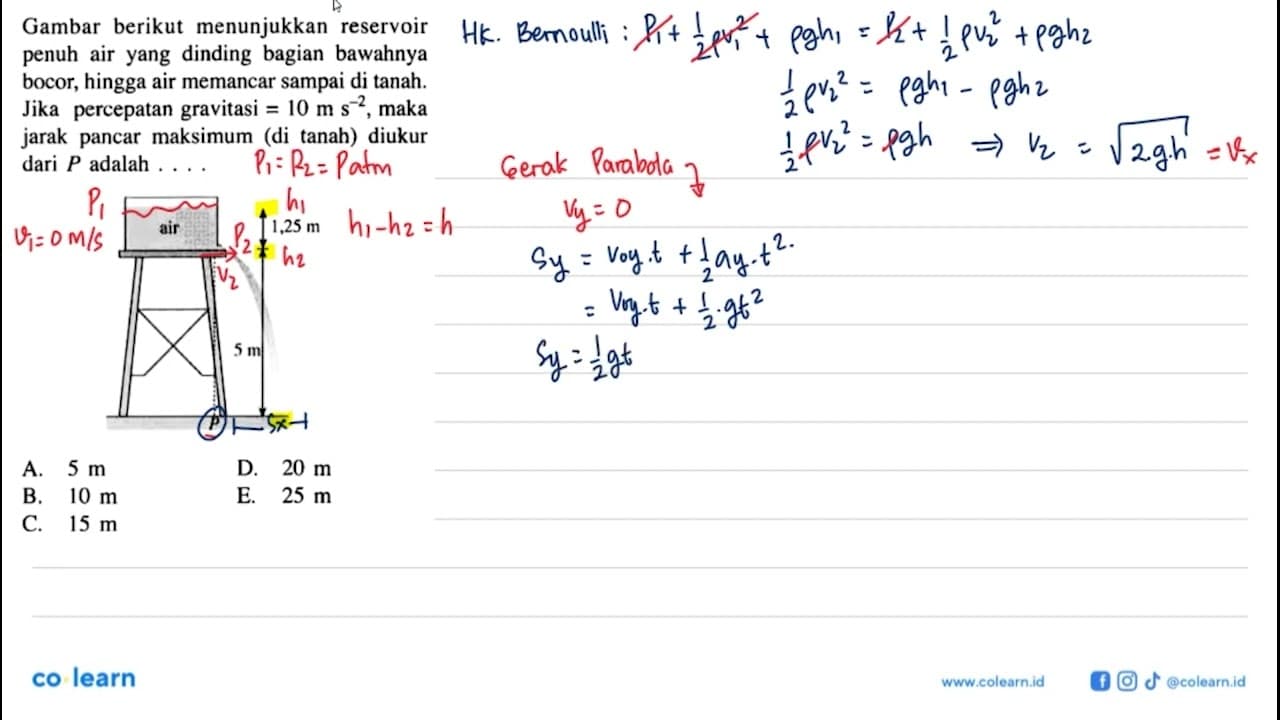 Gambar berikut menunjukkan reservoir
penuh air yang dinding bagian bawahnya
bocor, hingga air memancar sampai di tanah.
Jika percepatan gravitasi = 10 m s⁻², maka
jarak pancar maksimum (di tanah) diukur
dari P adalah . . . .
P₁ = P₂ = Patm
P₁
v₁ = 0 m/s
air
P₂
V₂
h₁
1,25 m
h₂
h₁ - h₂ = h
5 m
P
Sx
A. 5 m
B. 10 m
C. 15 m
D. 20 m
E. 25 m
Hk. Bernoulli : P₁ + 1/2 ρv₁² + ρgh₁ = P₂ + 1/2 ρv₂² + ρgh₂
1/2 ρv₂² = ρgh₁ - ρgh₂
1/2 ρv₂² = ρgh ⇒ V₂ = √2.g.h = Vx
Gerak Parabola
Vy = 0
Sy = Voy.t + 1/2 ay.t².
= Voy.t + 1/2 .gt²
Sy = 1/2 gt
co learn
www.colearn.id
@colearn.id